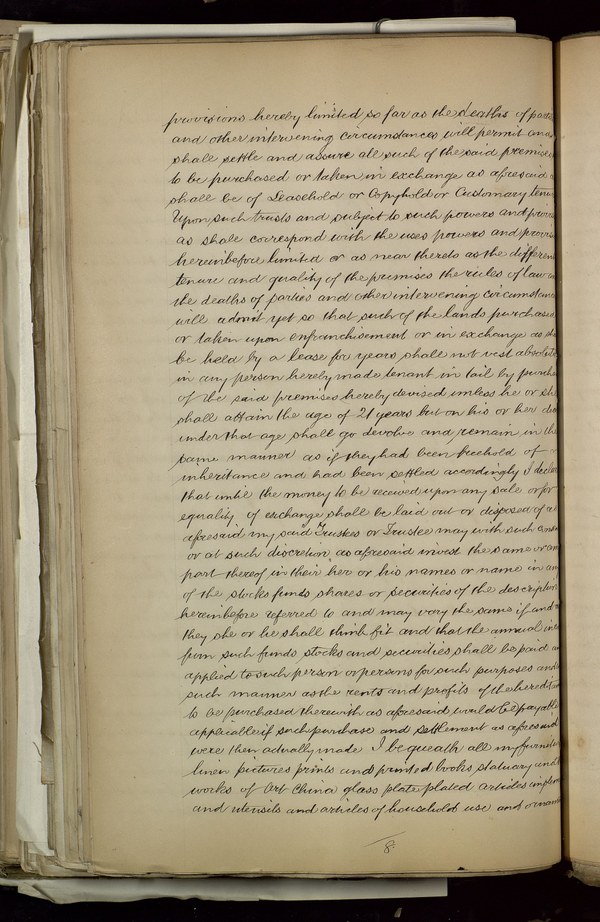 provisions hereby limited so far as the deaths of
and other intervening circumstances will permit and
shall settle and assure all such of the said premises
to be purchased or taken in exchange as aforesaid
shall be of Leasehold or Copyhold or Customary tenure
Upon such trusts and subject to such powers and
as shall correspond with the uses powers and
hereinbefore limited or as near thereto as the different
tenure and quality of the premises the rules of law
the deaths of parties and other intervening circumstances
will admit yet so that such of the lands purchased
or taken upon enfranchisement or in exchange as
be held by a lease for years shall not vest absolutely
in any person hereby made tenant in tail by
of the said premises hereby devised unless he or she
shall attain the age of 21 years but on his or her
under that age shall go devolve and remain in the
same manner as if they had been freehold of
inheritance and had been settled accordingly I declare
that until the money to be received upon any sale or for
equality of exchange shall be laid out or disposed of as
aforesaid my said Trustees or Trustee may with such
or at such discretion as aforesaid invest the same or any
part thereof in their her or his names or name in any
of the stocks funds shares or securities of the description
hereinbefore referred to and may vary the same if and
they she or he shall think fit and that the annual
from such funds stocks and securities shall be paid
applied to such person or persons for such purposes and
such manner as the rents and profits of the
to be purchased therewith as aforesaid would be payable
applicable if such purchase and settlement as aforesaid
were then actually made I bequeath all my furniture
linen pictures prints and printed books statuary and
works of Art China glass plate plated articles
and utensils and articles of household use and
8.